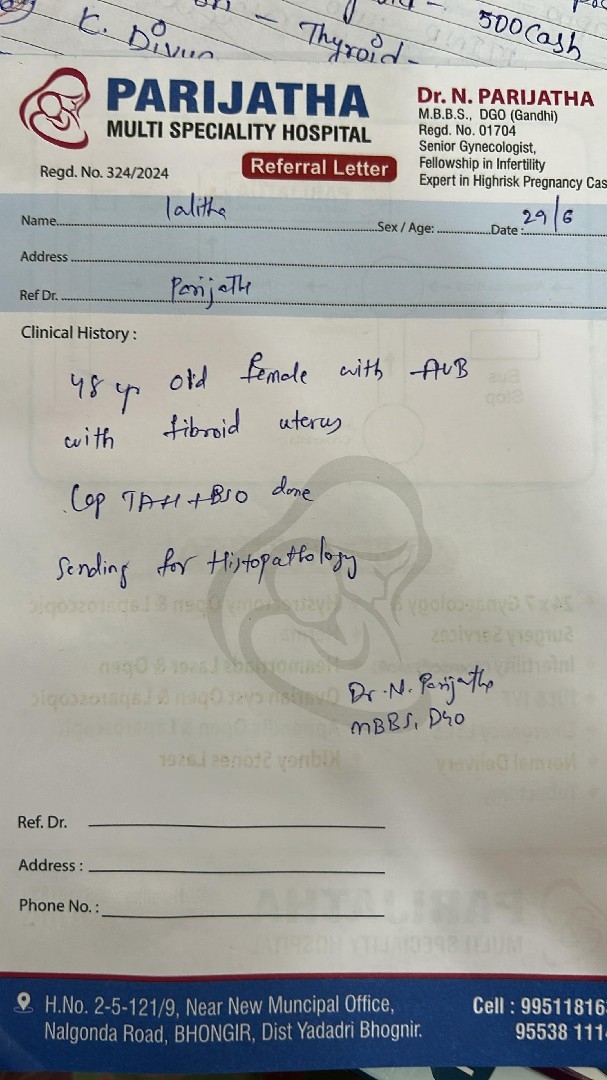 K. Divya
Thyroid -
500 Cash
PARIJATHA
MULTI SPECIALITY HOSPITAL
Regd. No. 324/2024
Referral Letter
Dr. N. PARIJATHA
M.B.B.S., DGO (Gandhi)
Regd. No. 01704
Senior Gynecologist,
Fellowship in Infertility
Expert in Highrisk Pregnancy Cas
Name lalitha Sex / Age: Date : 29/6
Address
Ref Dr. Parijatha
Clinical History :
48 yr old female with AUB
with fibroid uterus
Lap TAH + BSO done
Sending for Histopathology
Dr. N. Parijatha
MBBS, DGO
Ref. Dr.
Address :
Phone No. :
H.No. 2-5-121/9, Near New Muncipal Office,
Nalgonda Road, BHONGIR, Dist Yadadri Bhognir.
Cell : 99511816
95538 111